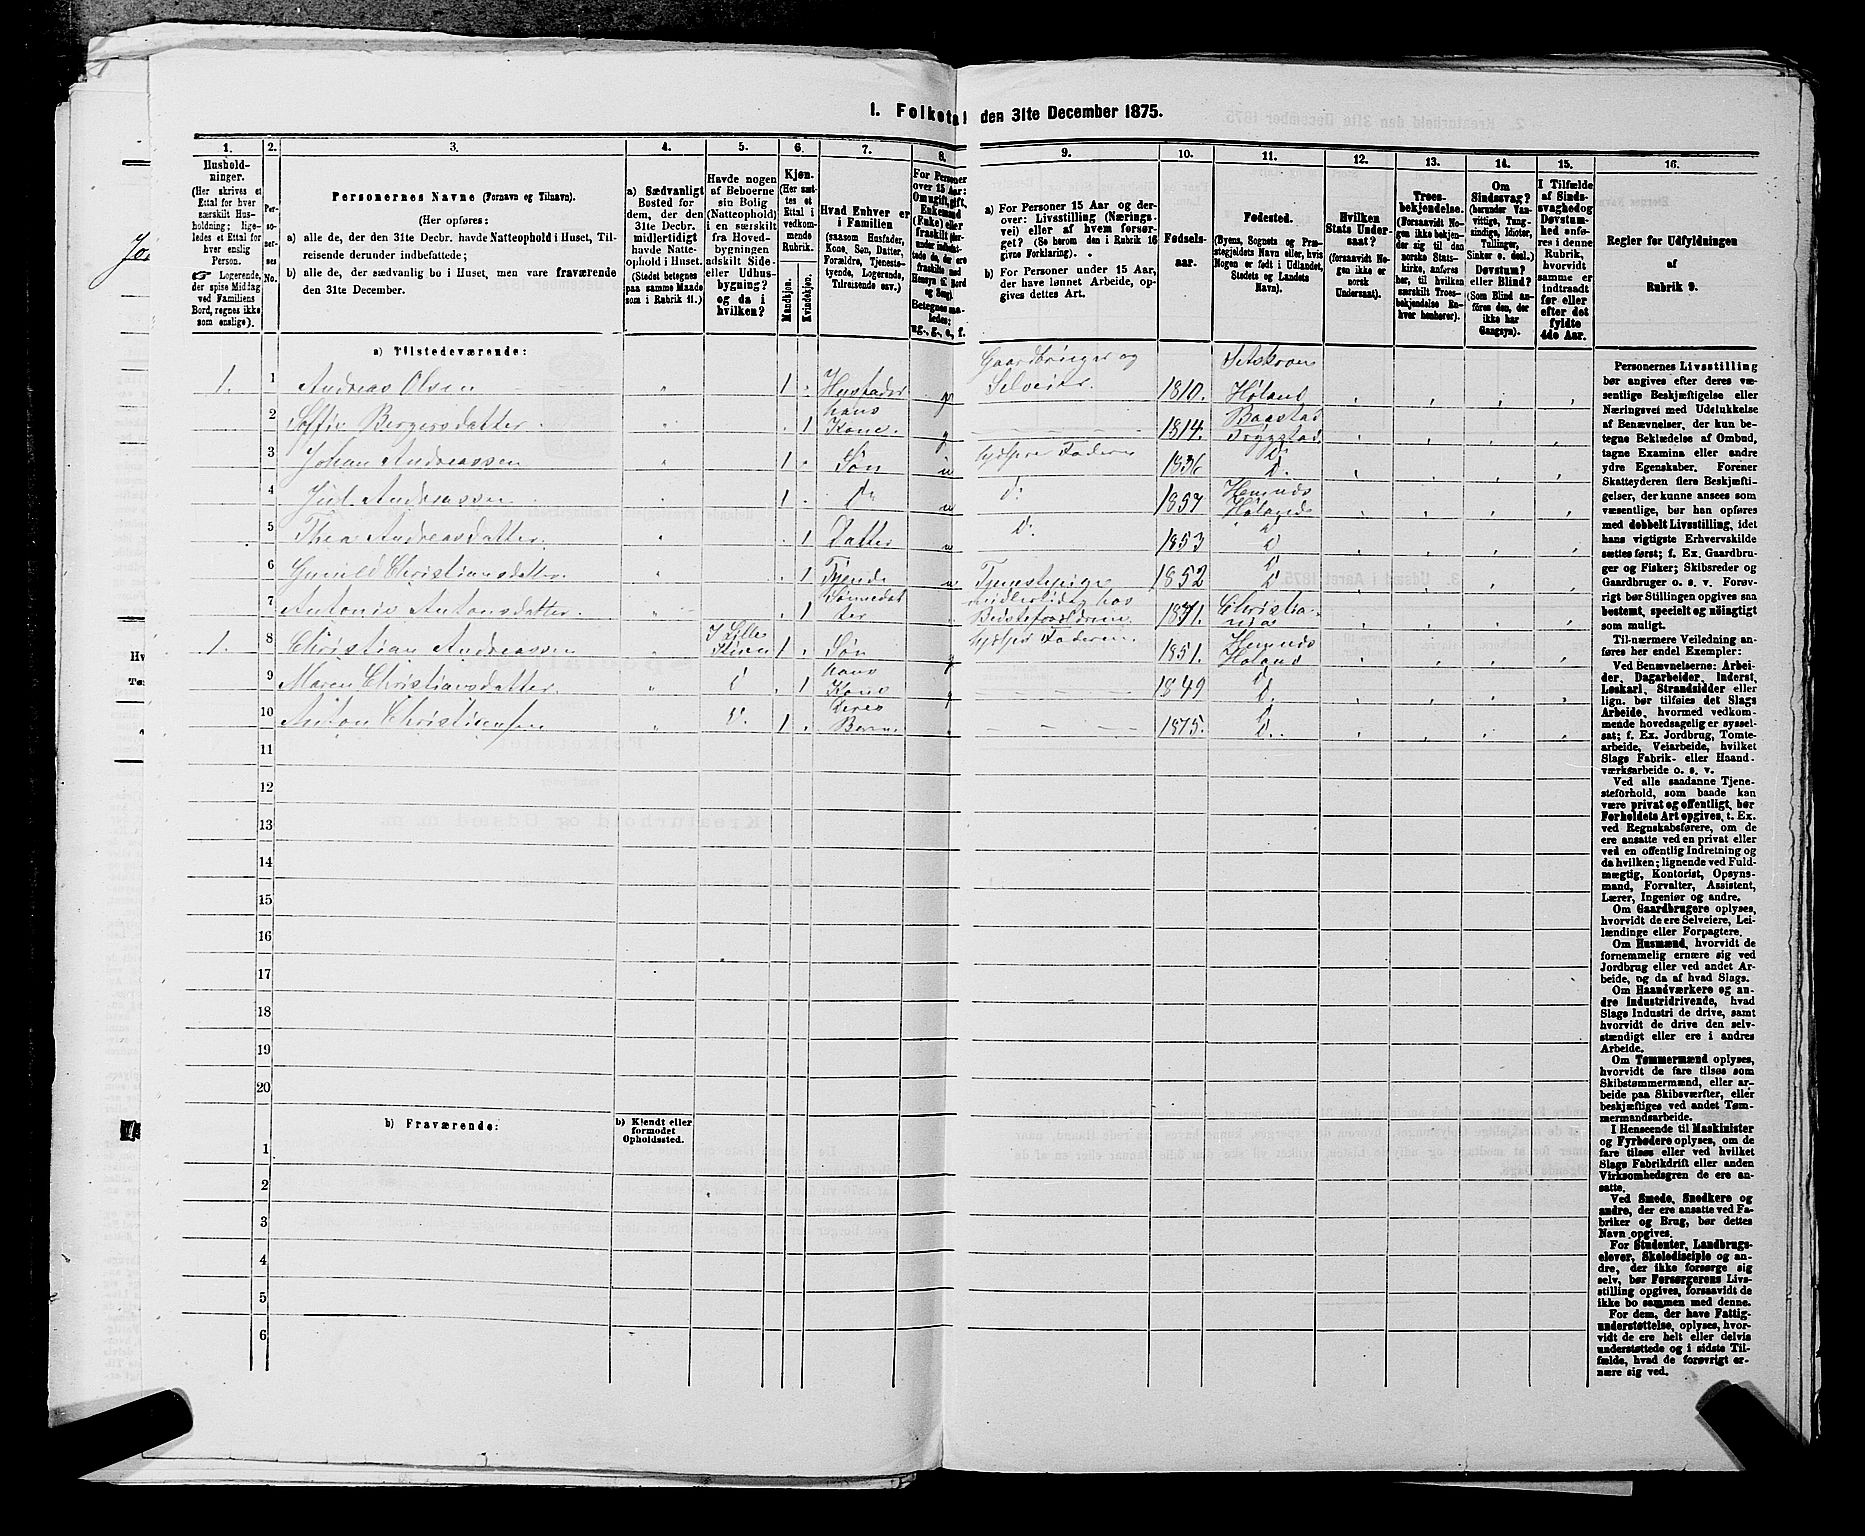 1. Folketal den 31te December 1875.
1. 2. 3. 4. 5. 6. 7. 8. 9. 10. 11. 12. 13. 14. 15. 16.
Hushold-
ninger.
(Her skrives et
Ettal for hver
særskilt Hus-
holdning; lige-
ledes et Ettal for
hver enslig
Person.
☞ Logerende,
der spise Middag
ved Familiens
Bord, regnes ikke
som enslige).
Per-
so-
ner-
nes
No.
Personernes Navne (Fornavn og Tilnavn).
(Her opføres:
a) alle de, der den 31te Decbr. havde Natteophold i Huset, Til-
reisende derunder indbefattede;
b) alle de, der sædvanlig bo i Huset, men vare fraværende
den 31te December.
a) Sædvanligt
Bosted for
dem, der den
31te Decbr.
midlertidigt
havde Natte-
ophold i Huset.
(Stedet betegnes
paa samme Maade
som i Rubrik 11.)
Havde nogen
af Beboerne
sin Bolig
(Natteophold)
i en særskilt
fra Hoved-
bygningen
adskilt Side-
eller Udhus-
bygning?
og da i
hvilken?
Kjøn.
(Her sæt-
tes et
Ettal i
vedkom-
mende
Rubrik.
Mandkjøn.
Kvindekjøn.
Hvad Enhver er
i Familien
(saasom Husfader,
Kone, Søn, Datter,
Forældre, Tjeneste-
tyende, Logerende,
Tilreisende osv.)
For Personer
over 15 Aar:
Om ugift, gift,
Enkemand
(Enke) eller
fraskilt
Betegnes saa-
ledes:
ug., g., e., f.
a) For Personer 15 Aar og der-
over: Livsstilling (Nærings-
vei) eller af hvem forsør-
get? (Se herom den i Rubrik 16
givne Forklaring).
b) For Personer under 15 Aar,
der have lønnet Arbeide, op-
gives dettes Art.
Fødsels-
aar.
Fødested.
(Byens, Sognets og Præ-
stegjeldets Navn eller, hvis
Nogen er født i Udlandet,
Stedets og Landets
Navn).
Hvilken
Stats Under-
saat?
(forsaavidt No-
gen ikke er
norsk
Undersaat).
Troes-
bekjendelse.
(Forsaavidt No-
gen ikke bekjen-
der sig til den
norske Stats-
kirke, anføres
her, til hvilken
særskilt Troes-
bekjendelse En-
hver henhører).
Om
Sindssvag?
(herunder Van-
vittige, Tung-
sindige, Idioter,
Tullinger,
Sinker o. desl.)
Døvstum?
eller Blind?
(Som Blind an-
føres den, der
ikke har
Gangsyn).
I Tilfælde
af Sinds-
svaghed og
Døvstum-
hed anfø-
res i denne
Rubrik,
hvorvidt
samme er
indtraadt
før eller
efter det
fyldte
4de Aar.
Regler for Udfyldningen
af
Rubrik 9.
a) Tilstedeværende:
1. 1 Andreas Olsen 1 Husfader g Gaardbruger og Selveier. 1810. Setskoven Høland
2 Soffie Bergersdatter. 1 hans Kone. g 1814. Baastad Trygstad
3 Johan Andreassen 1 Søn u hjelper Faderen 1836 D. D.
4 Juel Andreassen 1 do u do 1857 Hemnes Høland
5 Thea Andreasdatter. 1 Datter u do 1853 D
6 Gunild Christiansdatter. 1 Tjende u Tjenestepige 1852 D D
7 Antonie Antonsdatter. 1 Sønnedatter midlertidig hos Bedsteforældrene 1871. Christiania
1. 8 Christian Andreassen I Lille Stuen 1 Søn g hjelper Faderen 1851. Hemnes Høland
9 Maren Christiansdatter. do 1 hans Kone g 1849 D D.
10 Anton Christiansen do 1 deres Barn 1875. D D.
11
12
13
14
15
16
17
18
19
20
b) Fraværende:
b) Kjendt eller
formodet
Opholdssted.
1
2
3
4
5
6
Personernes Livsstilling
bør angives efter deres væ-
sentlige Beskjæftigelse eller
Næringsvei med Udelukkelse
af Benævnelser, der kun be-
tegne Beklædelse af Ombud,
tagne Examina eller andre
ydre Egenskaber. Forener
Skatteyderen flere Beskjæfti-
gelser, der kunne ansees som
væsentlige, bør han opføres
med dobbelt Livsstilling, idet
hans vigtigste Erhvervskilde
sættes først; f. Ex. Gaardbru-
ger og Fisker; Skibsreder og
Gaardbruger o. s. v. Forøv-
rigt bør Stillingen opgives saa
bestemt, specielt og nöiagtigt
som muligt.
Til nærmere Veiledning an-
føres her endel Exempler:
Ved Benævnelserne: Arbei-
der, Dagarbeider, Inderst,
Løskarl, Strandsidder eller
lign. bør tilføies det Slags
Arbeide, hvormed vedkom-
mende hovedsagelig er syssel-
sat; f. Ex. Jordbrug, Tomte-
arbeide, Veiarbeide, hvilket
Slags Fabrik- eller Haand-
værksarbeide o. s. v.
Ved alle saadanne Tjene-
steforhold, som baade kan
være privat og offentligt, bør
Forholdets Art opgives, t. Ex.
ved Regnskabsførere, om de
ere ansatte ved en privat eller
ved en offentlig Indretning og
da hvilken; lignende ved Fuld-
mægtig, Kontorist, Opsyns-
mand, Forvalter, Assistent,
Lærer, Ingeniør og andre.
Om Gaardbrugere oplyses,
hvorvidt de ere Selveiere, Lei-
lændinge eller Forpagtere.
Om Husmænd, hvorvidt de
fornemmelig ernære sig ved
Jordbrug eller ved andet Ar-
beide, og da af hvad Slags.
Om Haandværkere og an-
dre Industridrivende, hvad
Slags Industri de drive, samt
hvorvidt de drive den selv-
stændigt eller ere i andres
Arbeide.
Om Tømmermænd oplyses,
hvorvidt de fare tilsøs som
Skibstømmermænd, eller ar-
beide paa Skibsværfter, eller
beskjæftiges ved andet Tøm-
mermandsarbeide.
I Henseende til Maskinister
og Fyrbødere oplyses, om de
fare tilsøs eller ved hvilket
Slags Fabrikdrift eller anden
Virksomhedsgren de ere an-
satte.
Ved Smede, Snedkere og
andre, der ere ansatte ved Fa-
briker og Brug, bør dettes
Navn opgives.
For Studenter, Landbrugs-
elever, Skoledisciple og an-
dre, der ikke forsørge sig
selv, bør Forsørgerens Livs-
stilling opgives, forsaavidt de
ikke bo sammen med denne.
For dem, der have Fattig-
understøttelse, oplyses, hvor-
vidt de ere helt eller delvis
understøttede og i sidste Til-
fælde, hvad de forøvrigt er-
nære sig ved.